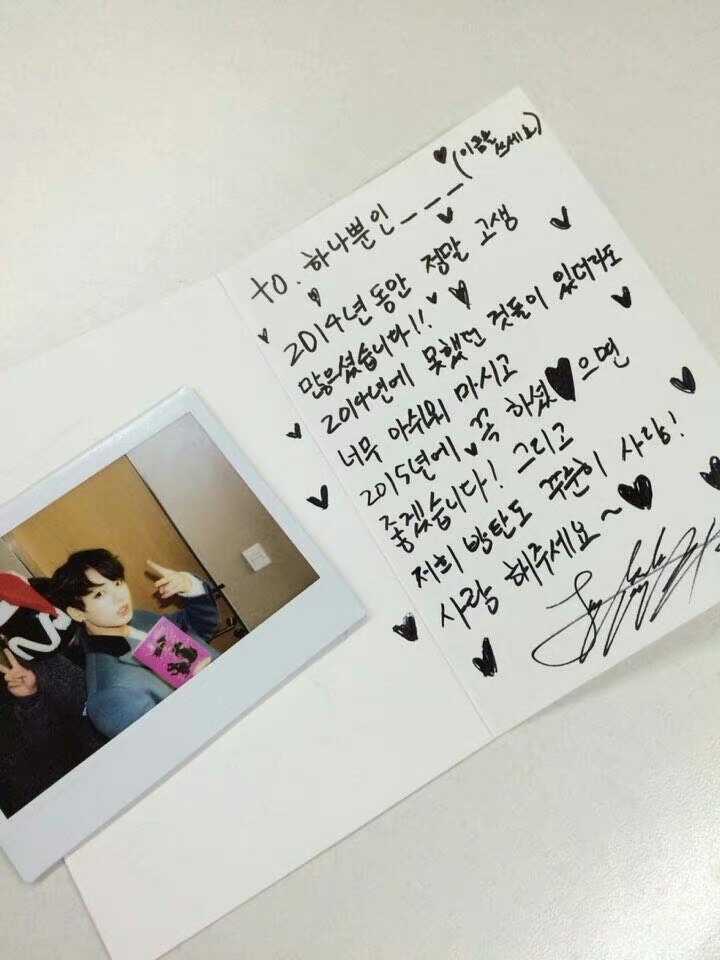 ♥(이름을 쓰세요)
to. 하나뿐인 _ _ _
2014년 동안 정말 고생
많으셨습니다!!
2014년에 못했던 것들이 있더라도
너무 아쉬워 마시고
2015년에 꼭 하셨♥으면
좋겠습니다! 그리고
저희 방탄도 꾸준히 사랑!
사랑 해주세요~♥